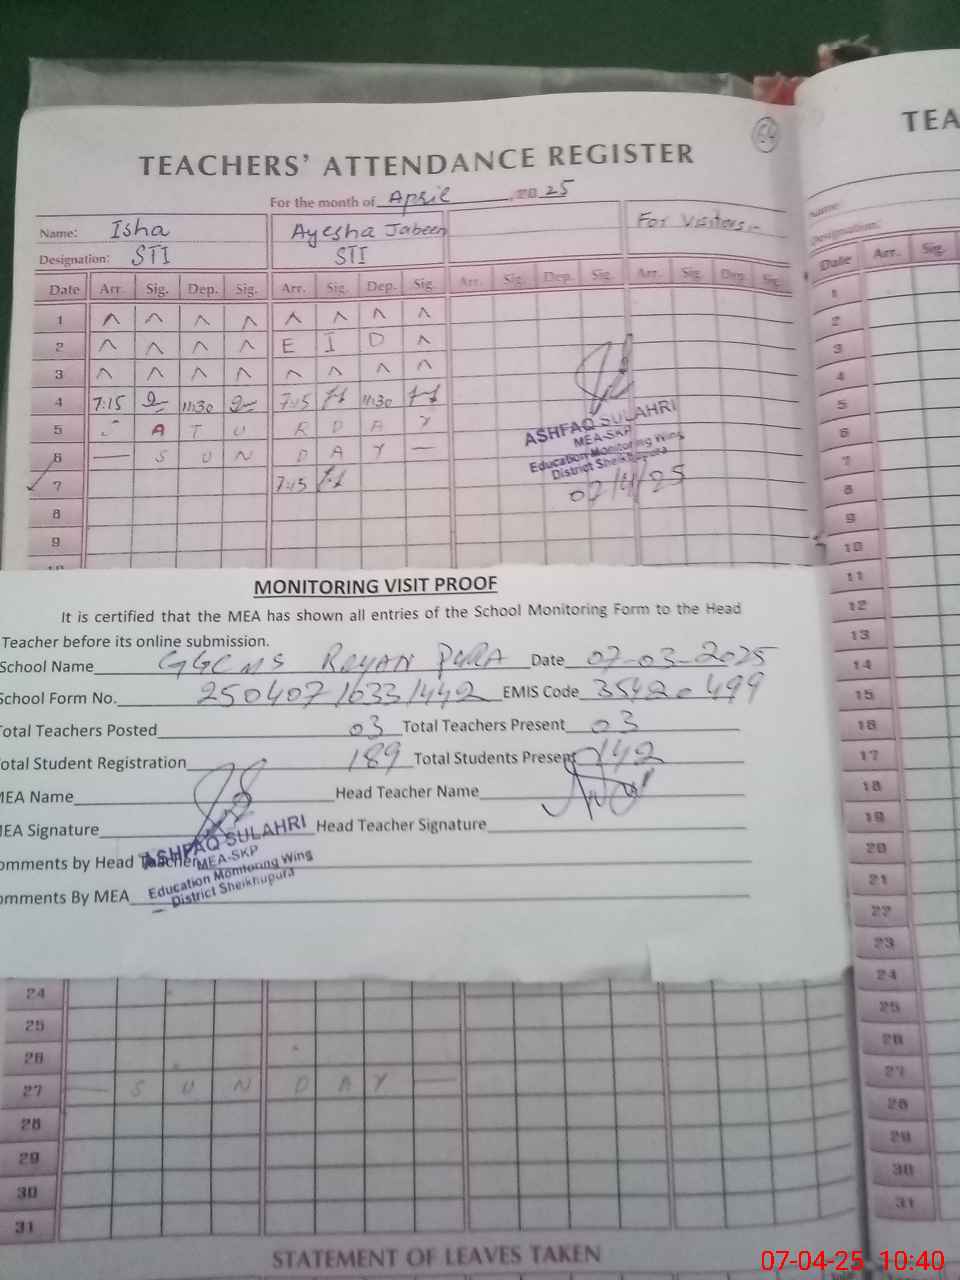 54
TEACHERS' ATTENDANCE REGISTER
TEA
For the month of April, 20 25
Name: Isha Ayesha Jabeen For Visitors
Designation: STI STI
Name:
Designation:
Date Arr. Sig. Dep. Sig. Arr. Sig. Dep. Sig. Arr. Sig. Dep. Sig. Arr. Sig. Dep. Sig.
Date Arr. Sig.
1
2 E I D
3
4 7:15 11:30 7:15 11:30
5 S A T U R D A Y
6 — S U N D A Y —
7 7:15
8
9
ASHFAQ SULAHRI
MEA-SKP
Education Monitoring Wing
District Sheikhupura
07/4/25
MONITORING VISIT PROOF
It is certified that the MEA has shown all entries of the School Monitoring Form to the Head
Teacher before its online submission.
School Name GGCMS RAYAN PURA Date 07-03-2025
School Form No. 250407/633/442 EMIS Code 35420499
Total Teachers Posted 03 Total Teachers Present 03
Total Student Registration 189 Total Students Present 142
MEA Name Head Teacher Name
MEA Signature Head Teacher Signature
omments by Head Teacher
omments By MEA
ASHFAQ SULAHRI
MEA-SKP
Education Monitoring Wing
District Sheikhupura
24
25
26
27 — S U N D A Y —
28
29
30
31
STATEMENT OF LEAVES TAKEN
1
2
3
4
5
6
7
8
9
10
11
12
13
14
15
16
17
18
19
20
21
22
23
24
25
26
27
28
29
30
31
07-04-25 10:40